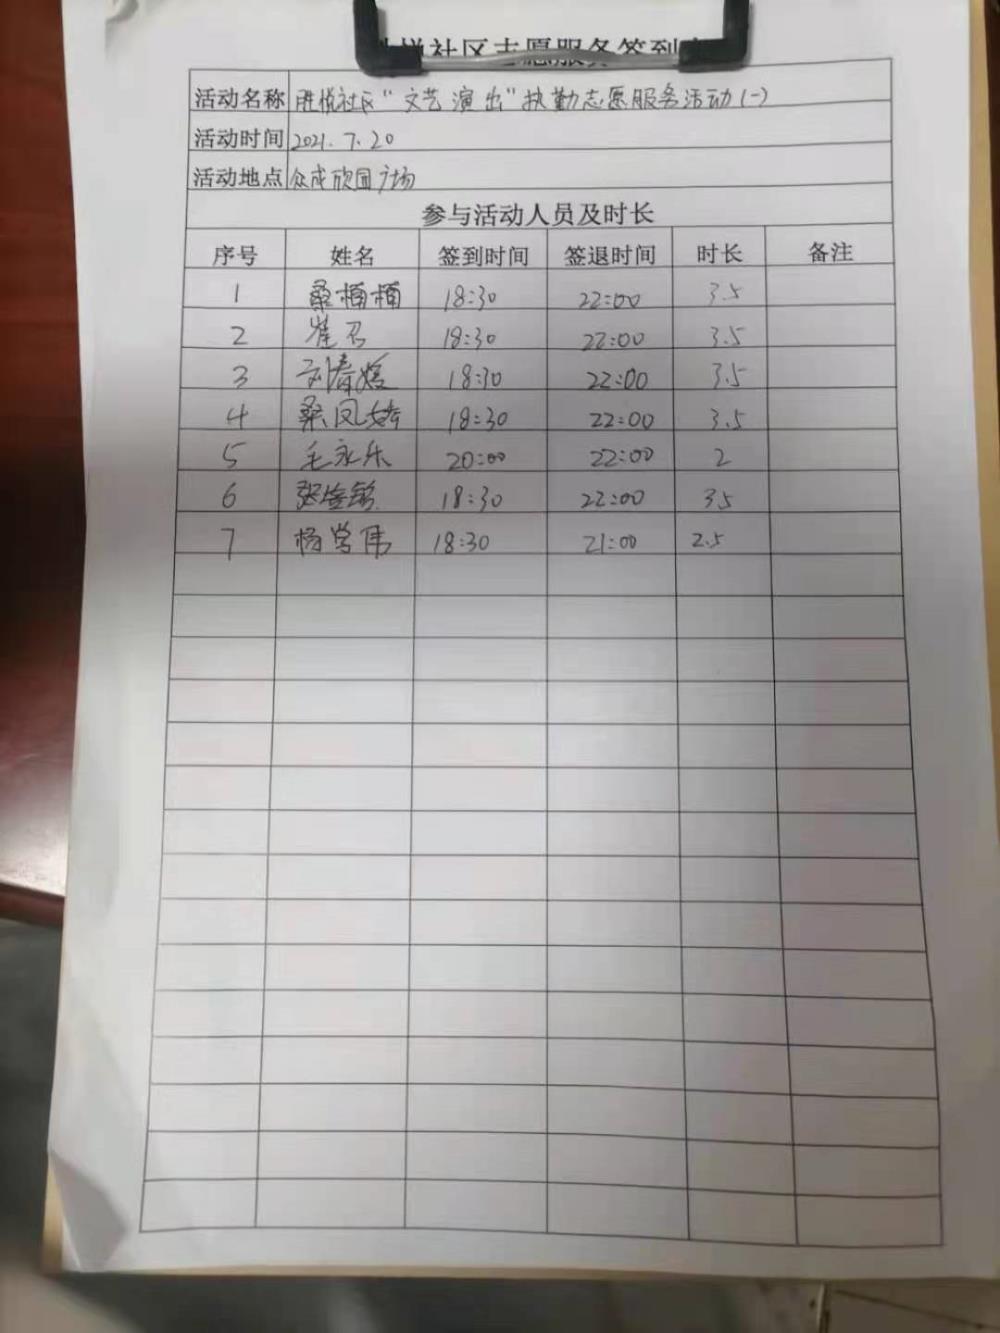 胜悦社区志愿服务签到
活动名称 胜悦社区“文艺演出”执勤志愿服务活动(一)
活动时间 2021.7.20
活动地点 众成欣园广场
参与活动人员及时长
序号 姓名 签到时间 签退时间 时长 备注
1 桑楠楠 18:30 22:00 3.5
2 崔召 18:30 22:00 3.5
3 刘春媛 18:30 22:00 3.5
4 桑凤婷 18:30 22:00 3.5
5 毛永乐 20:00 22:00 2
6 张 18:30 22:00 35
7 杨学伟 18:30 21:00 2.5